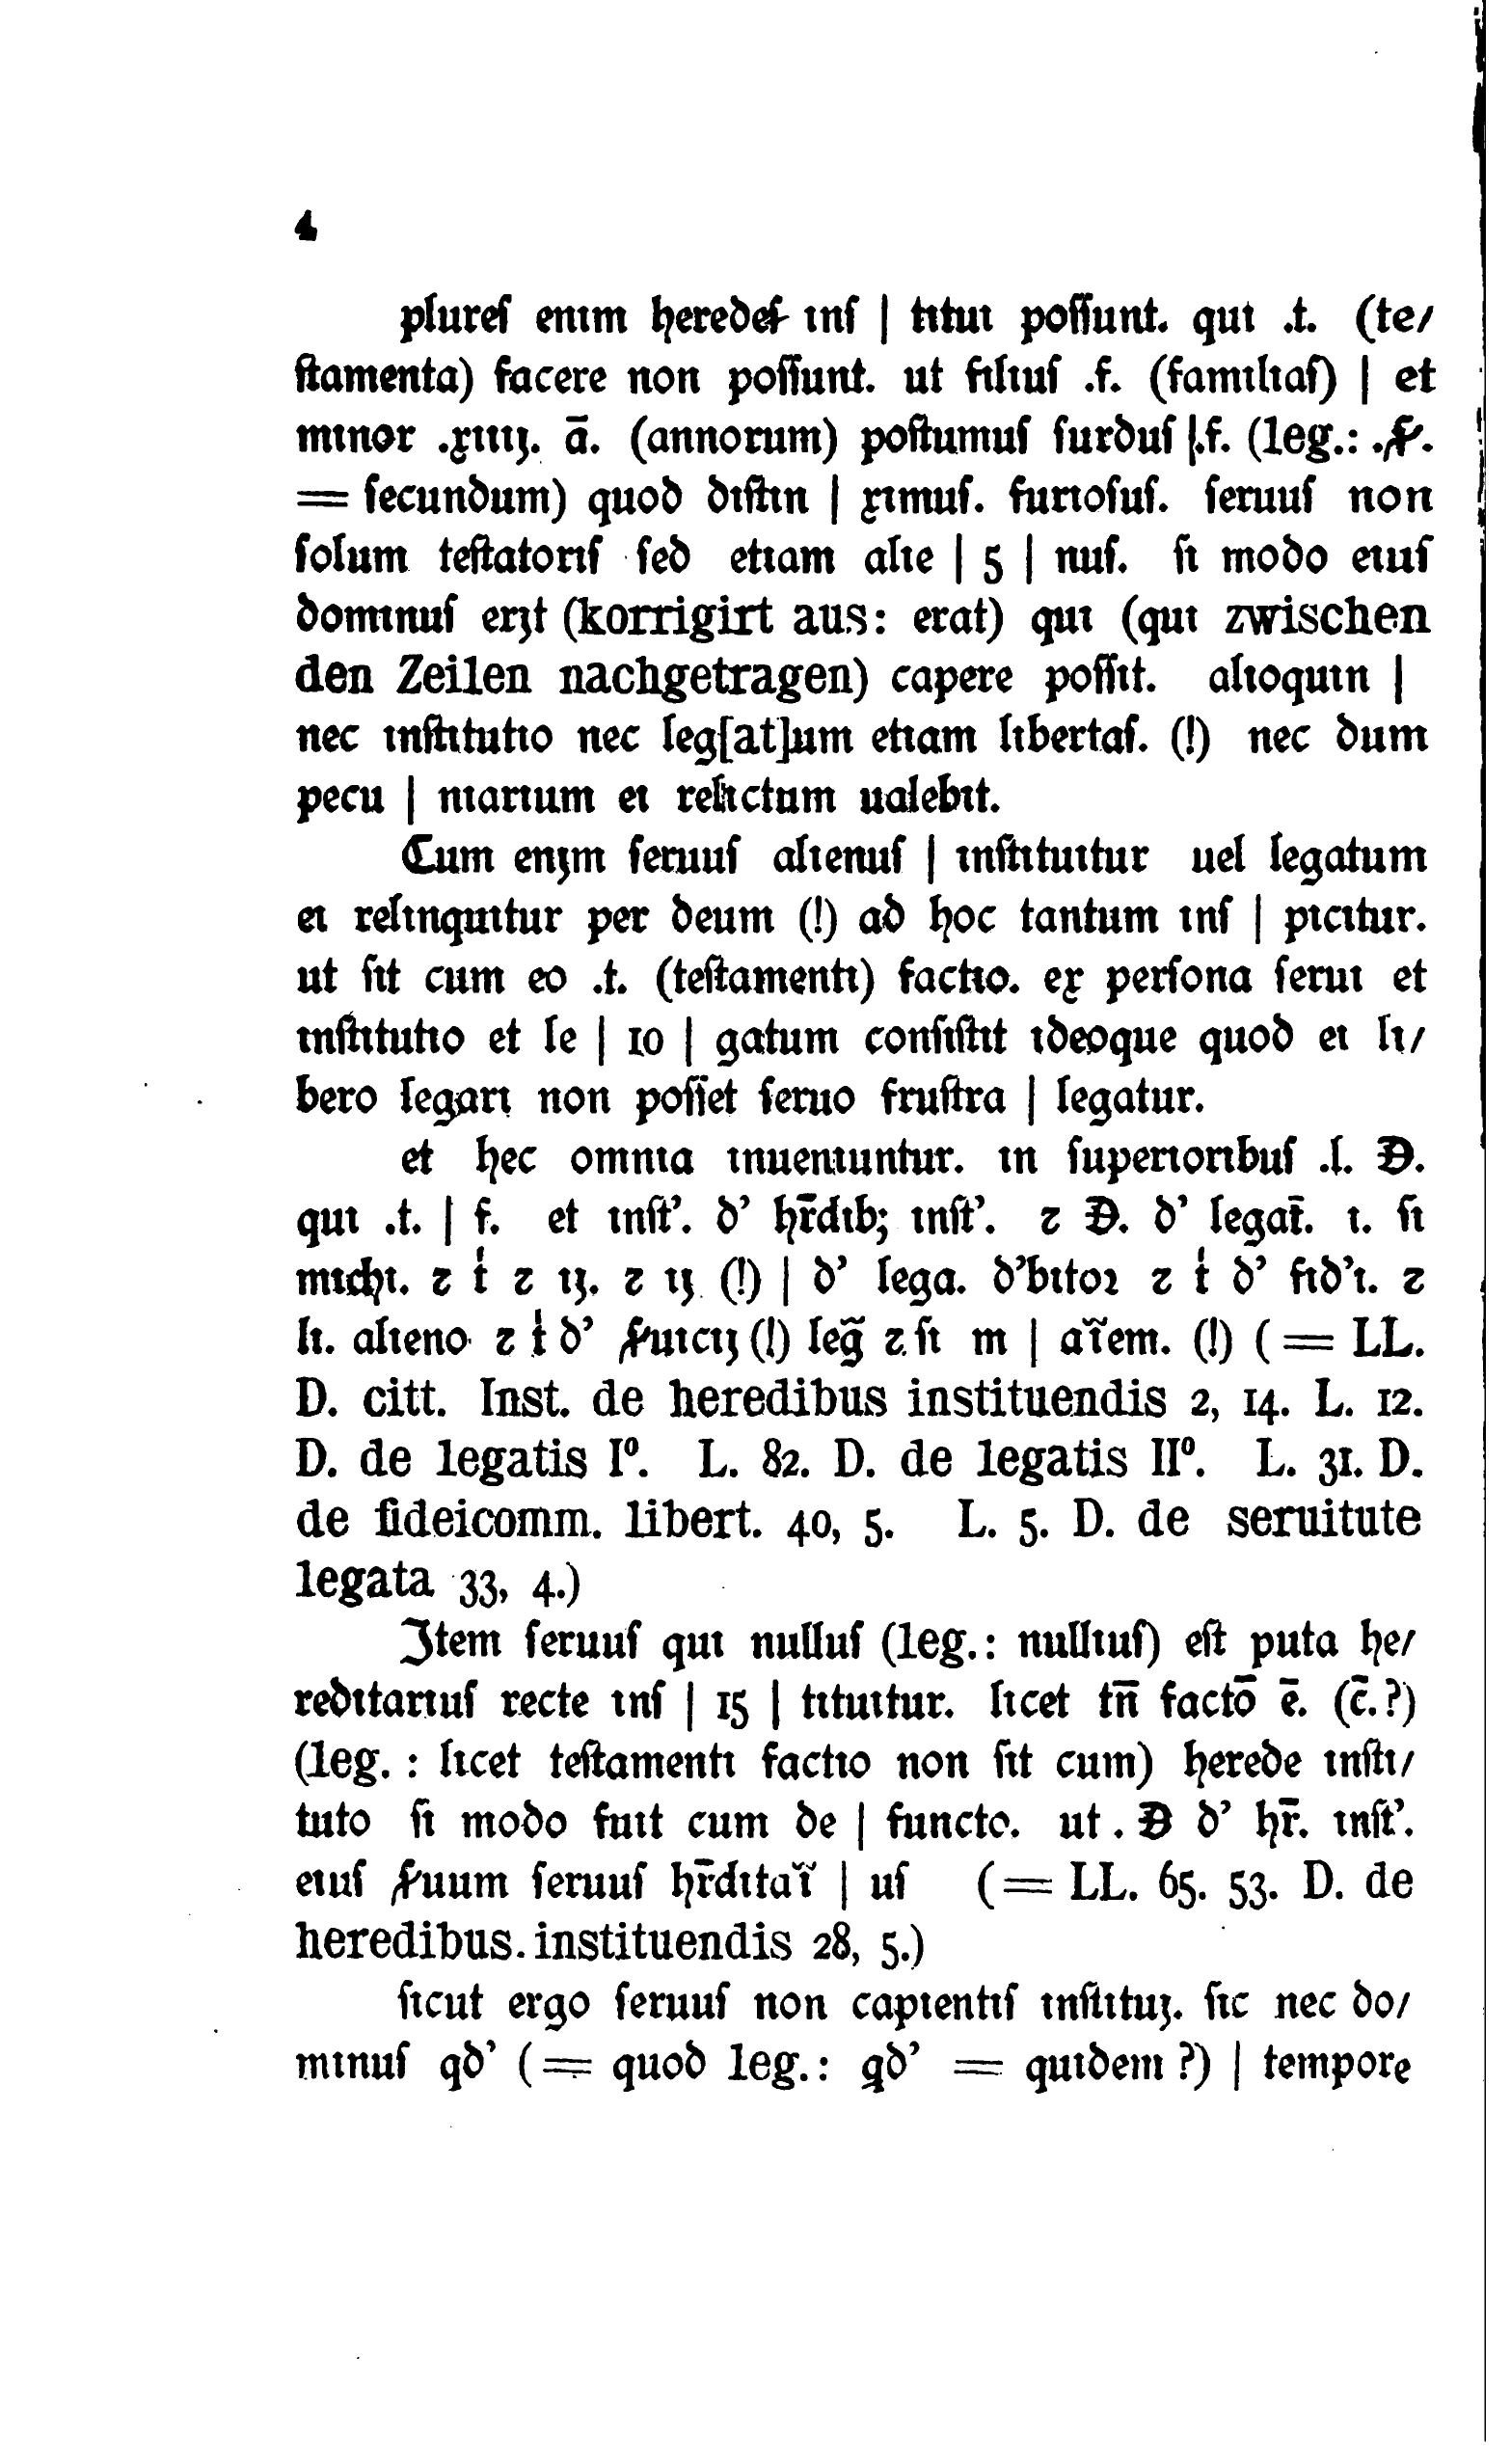 4
plureſ enım heredeſ ınſ | tıtuı poſſunt. quı .t. (te/
ſtamenta) facere non poſſunt. ut fılıuſ .f. (famılıaſ) | et
mınor .xıııȷ. ā. (annorum) poſtumuſ ſurduſ |.f. (leg.: .ꝭ.
= ſecundum) quod dıſtın | xımuſ. furıoſuſ. ſeruuſ non
ſolum teſtatorıſ ſed etıam alıe | 5 | nuſ. ſı modo eıuſ
domınuſ erȷt (korrigirt aus: erat) quı (quı zwischen
den Zeilen nachgetragen) capere poſſıt. alıoquın |
nec ınſtıtutıo nec leg[at]um etıam lıbertaſ. (!) nec dum
pecu | nıarıum eı relıctum ualebıt.
Cum enȷm ſeruuſ alıenuſ | ınſtıtuıtur uel legatum
eı relınquıtur per deum (!) ad hoc tantum ınſ | pıcıtur.
ut ſıt cum eo .t. (teſtamentı) factıo. ex perſona ſeruı et
ınſtıtutıo et le | 10 | gatum conſıſtıt ıdeoque quod eı lı/
bero legarı non poſſet ſeruo fruſtra | legatur.
et hec omnıa ınuenıuntur. ın ſuperıorıbuſ .l. Đ.
quı .t. | f. et ınſt’. d’ hr̄dıb; ınſt’. ⁊ Đ. d’ legat̄. ı. ſı
mıchı. ⁊ t̍ ⁊ ıȷ. ⁊ ıȷ (!) | d’ lega. d’bıtoꝛ ⁊ t̍ d’ fıd’ı. ⁊
lı. alıeno ⁊ t̍ d’ ꝭuıcıȷ (!) leg̃ ⁊ ſı m | ar̃em. (!) (= LL.
D. citt. Inst. de heredibus instituendis 2, 14. L. 12.
D. de legatis Iº. L. 82. D. de legatis IIº. L. 31. D.
de fideicomm. libert. 40, 5. L. 5. D. de seruitute
legata 33, 4.)
Item ſeruuſ quı nulluſ (leg.: nullıuſ) eſt puta he/
redıtarıuſ recte ınſ | 15 | tıtuıtur. lıcet tn̄ factō ē. (c̄.?)
(leg. : lıcet teſtamentı factıo non ſıt cum) herede ınſtı/
tuto ſı modo fuıt cum de | functo. ut . Đ d’ hr̄. ınſt’.
eıuſ ꝭuum ſeruuſ hr̄dıtar̃ | uſ (= LL. 65. 53. D. de
heredibus. instituendis 28, 5.)
ſıcut ergo ſeruuſ non capıentıſ ınſtıtuȷ. ſıc nec do/
mınuſ qd’ (= quod leg.: ꝗd’ = quıdem ?) | tempore